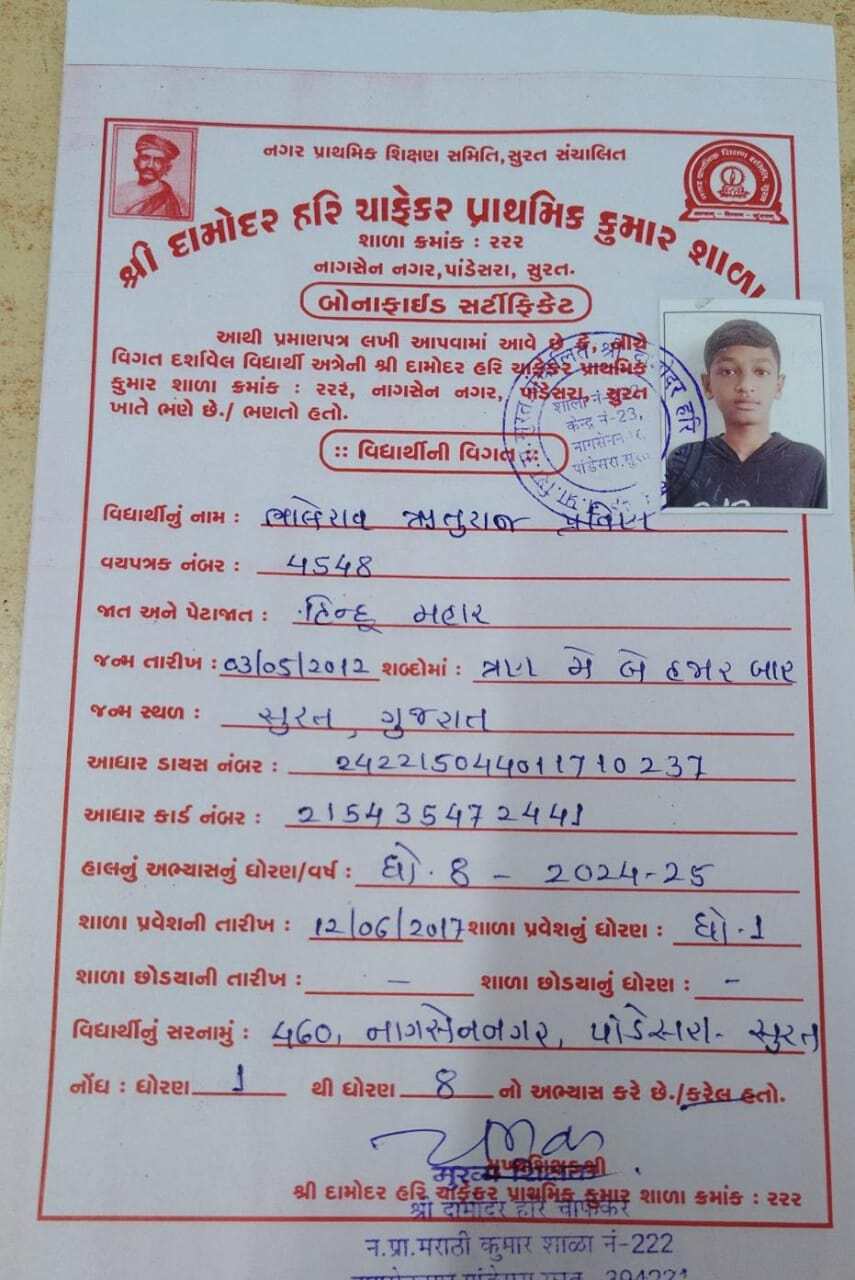 નગર પ્રાથમિક શિક્ષણ સમિતિ,સુરત સંચાલિત
શ્રી દામોદર હરિ ચાફેકર પ્રાથમિક કુમાર શાળા
શાળા ક્રમાંક : ૨૨૨
નાગસેન નગર,પાંડેસરા, સુરત.
બોનાફાઈડ સર્ટીફિકેટ
આથી પ્રમાણપત્ર લખી આપવામાં આવે છે કે, નીચે
વિગત દર્શાવેલ વિદ્યાર્થી અત્રેની શ્રી દામોદર હરિ ચાફેકર પ્રાથમિક
કુમાર શાળા ક્રમાંક : ૨૨૨, નાગસેન નગર, પાંડેસરા, સુરત
ખાતે ભણે છે./ ભણતો હતો.
शाळा नं-222
केन्द्र नं-23,
नागसेननगर,
पांडेसरा.सुरत
:: વિદ્યાર્થીની વિગત ::
વિદ્યાર્થીનું નામ : ભાલેરાવ ઋતુરાજ પ્રવિણ
વયપત્રક નંબર : 4548
જાત અને પેટાજાત : હિન્દૂ મહાર
જન્મ તારીખ : 03/05/2012 શબ્દોમાં : ત્રણ મે બે હજાર બાર
જન્મ સ્થળ : સુરત, ગુજરાત
આધાર ડાયસ નંબર : 242215044011710237
આધાર કાર્ડ નંબર : 215435472441
હાલનું અભ્યાસનું ધોરણ/વર્ષ : ધો. 8 - 2024-25
શાળા પ્રવેશની તારીખ : 12/06/2017 શાળા પ્રવેશનું ધોરણ : ધો-1
શાળા છોડયાની તારીખ : - શાળા છોડયાનું ધોરણ : -
વિદ્યાર્થીનું સરનામું : 460, નાગસેનનગર, પાંડેસરા- સુરત
નોંધ : ધોરણ 1 થી ધોરણ 8 નો અભ્યાસ કરે છે./કરેલ હતો.
મુખ્યશિક્ષકશ્રી
मुख्य शिक्षक
શ્રી દામોદર હરિ ચાફેકર પ્રાથમિક કુમાર શાળા ક્રમાંક : ૨૨૨
श्री दामोदर हरि चाफेकर
न.प्रा.मराठी कुमार शाळा नं-222